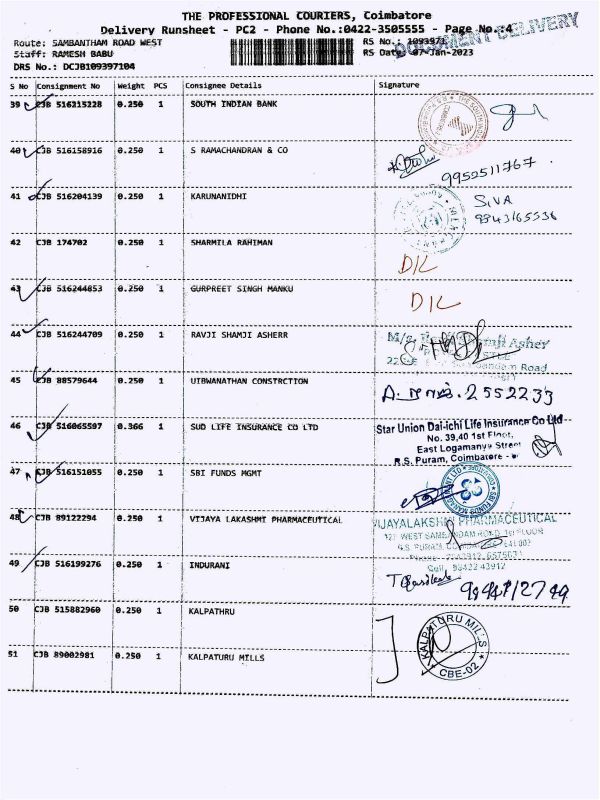 THE PROFESSIONAL COURIERS, Coimbatore
Delivery Runsheet - PC2 - Phone No.:0422-3505555 - Page No.:4
DOCUMENT DELIVERY
Route: SAMBANTHAM ROAD WEST RS No.: 1093971
Staff: RAMESH BABU RS Date: 07-Jan-2023
DRS No.: DCJB109397104
S No Consignment No Weight PCS Consignee Details Signature
39 CJB 516215228 0.250 1 SOUTH INDIAN BANK
40 CJB 516158916 0.250 1 S RAMACHANDRAN & CO
9952511767
41 CJB 516204139 0.250 1 KARUNANIDHI SIVA
9843165536
42 CJB 174702 0.250 1 SHARMILA RAHIMAN
D/L
43 CJB 516244853 0.250 1 GURPREET SINGH MANKU
D/L
44 CJB 516244709 0.250 1 RAVJI SHAMJI ASHERR
45 CJB 88579644 0.250 1 UIBWANATHAN CONSTRCTION
2552233
46 CJB 516065597 0.366 1 SUD LIFE INSURANCE CO LTD
Star Union Dai-ichi Life Insurance Co Ltd
No. 39,40 1st Floor,
East Logamanya Street
R.S. Puram, Coimbatore -
47 CJB 516151055 0.250 1 SBI FUNDS MGMT
48 CJB 89122294 0.250 1 VIJAYA LAKASHMI PHARMACEUTICAL
VIJAYALAKSHMI PHARMACEUTICAL
49 CJB 516199276 0.250 1 INDURANI
50 CJB 515882960 0.250 1 KALPATHRU
51 CJB 89002981 0.250 1 KALPATURU MILLS
KALPATURU MILLS
CBE-02